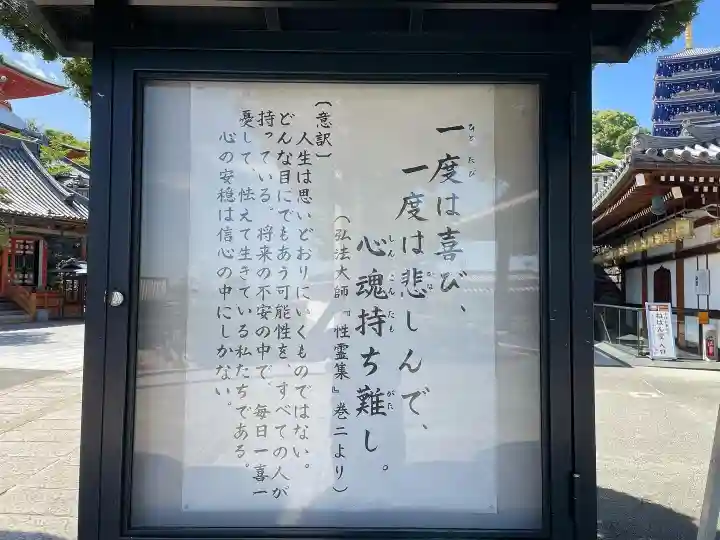 一度は喜び、
一度は悲しんで、
心魂持ち難し。
(弘法大師『性霊集』巻二より)
(意訳)
人生は思いどおりにいくものではない。
どんな目にでもあう可能性を、すべての人が
持っている。将来の不安の中で、毎日一喜一
憂して、怯えて生きている私たちである。
心の安穏は信心の中にしかない。